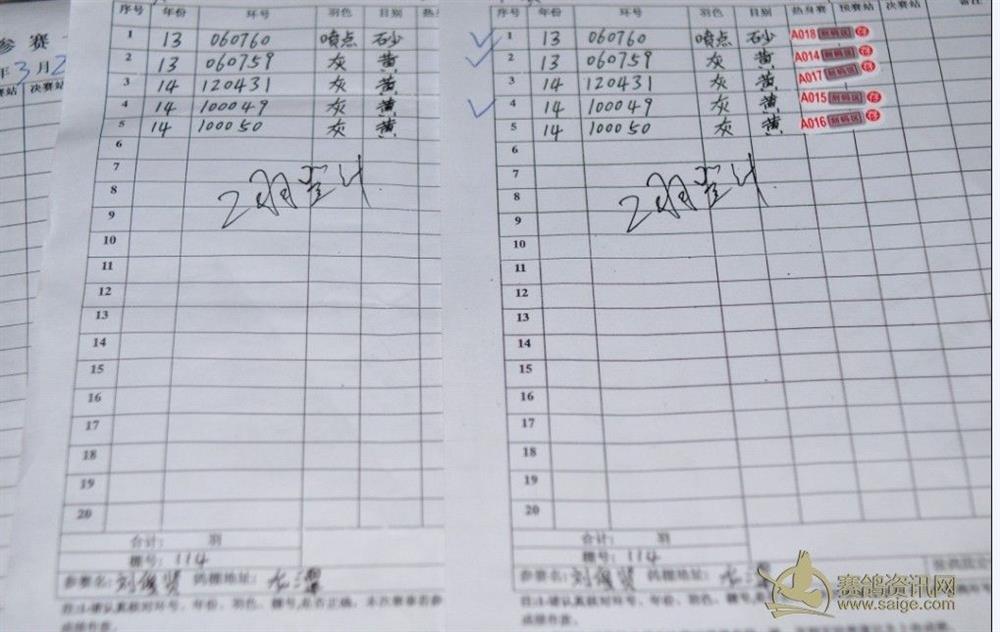 参 赛
年3月2
赛站 决赛站
序号 年份 环号 羽色 目别 热身
1 13 060760 喷点 砂
2 13 060759 灰 黄
3 14 120431 灰 黄
4 14 100049 灰 黄
5 14 100050 灰 黄
6
7
8
9
10
11
12
13
14
15
16
17
18
19
20
合计: 羽
棚号: 114
参赛名: 刘俊贤 鸽棚地址:
注:请认真核对环号、年份、羽色、棚号,是否正确,本次赛事若参
成绩作废。
序号 年份 环号 羽色 目别 热身赛 预赛站 决赛站 备注
1 13 060760 喷点 砂 A018
2 13 060759 灰 黄 A014
3 14 120431 灰 黄 A017
4 14 100049 灰 黄 A015
5 14 100050 灰 黄 A016
6
7
8
9
10
11
12
13
14
15
16
17
18
19
20
合计: 羽
棚号: 114
参赛名: 刘俊贤 鸽棚地址:
注:请认真核对环号、年份、羽色、棚号,是否正确
成绩作废。
赛鸽资讯网
www.saige.com